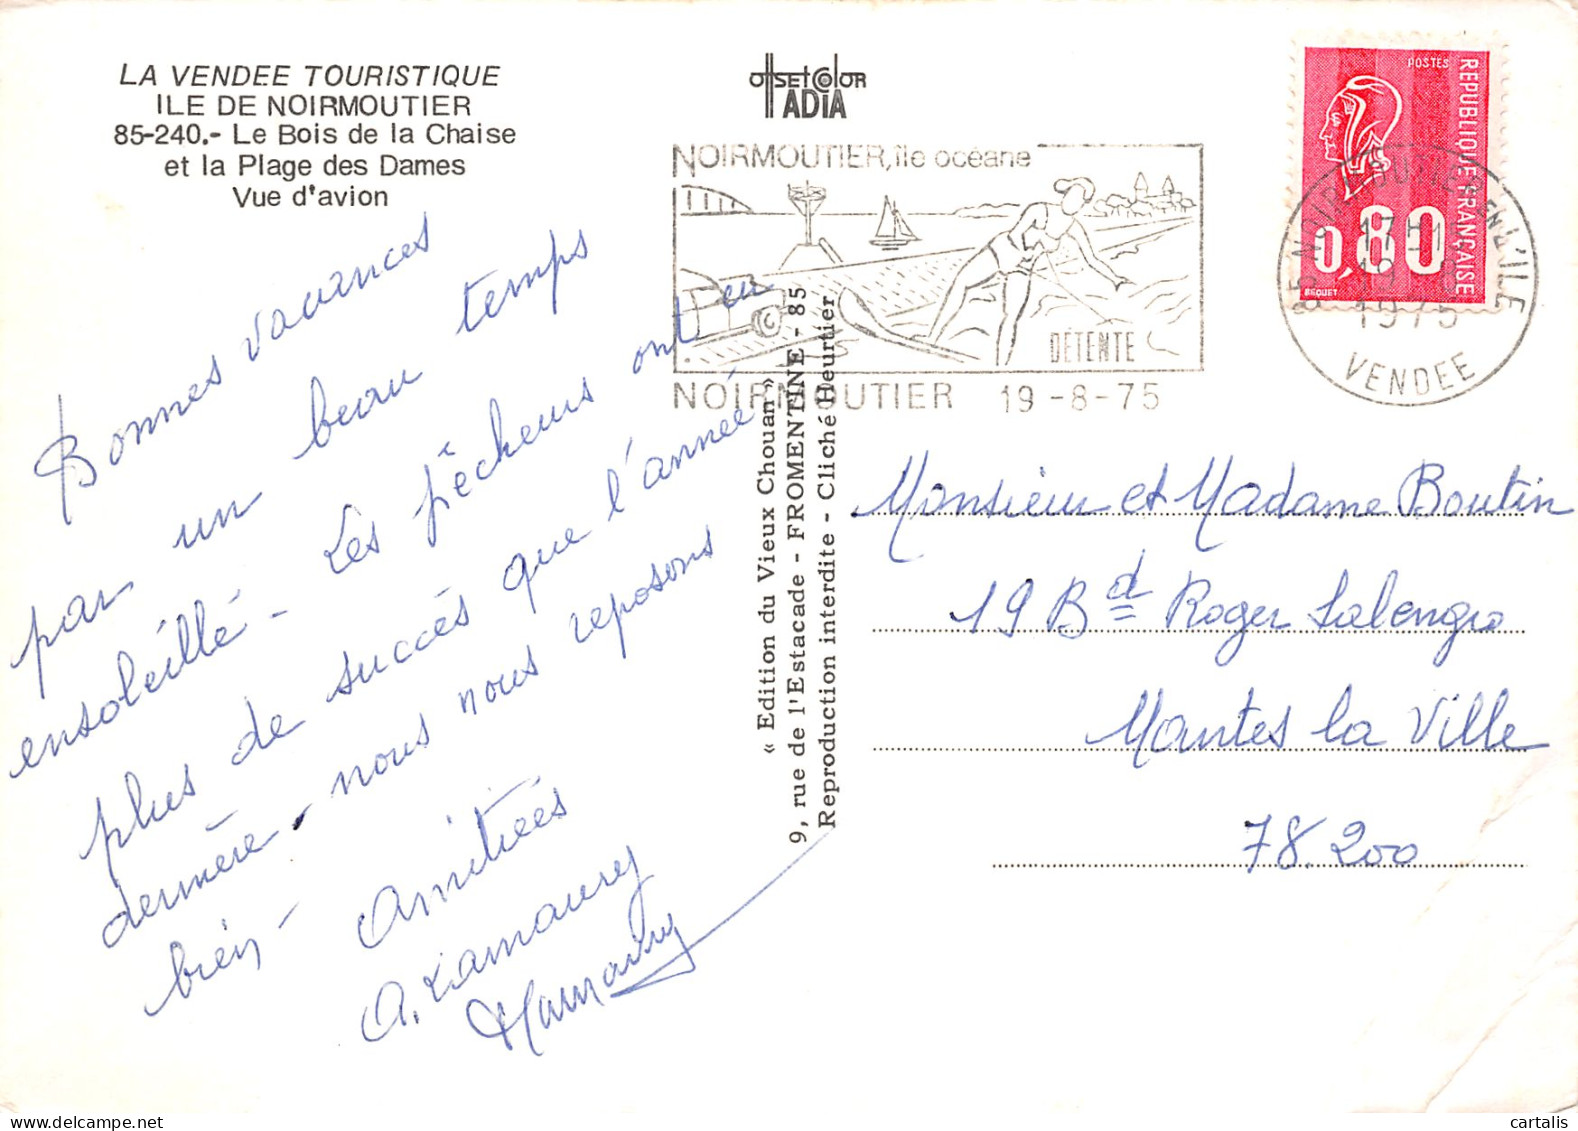 LA VENDEE TOURISTIQUE
ILE DE NOIRMOUTIER
85-240.- Le Bois de la Chaise
et la Plage des Dames
Vue d'avion
OffSETCOLOR
ADIA
NOIRMOUTIER, île océane
DÉTENTE
NOIRMOUTIER 19-8-75
POSTES
REPUBLIQUE FRANÇAISE
0,80
BEQUET
85 NOIRMOUTIER EN L'ILE
17H
19
1975
VENDEE
Bonnes vacances
par un beau temps
ensoleillé - Les pêcheurs ont eu
plus de succès que l'année
dernière - nous nous reposons
bien - Amitiés
A. Lamaurey
« Edition du Vieux Chouan »
9, rue de l'Estacade - FROMENTINE - 85
Reproduction interdite - Cliché Heurtier
Monsieur et Madame Boutin
19 Bd Roger Salengro
Mantes la Ville
78.200
cartalis